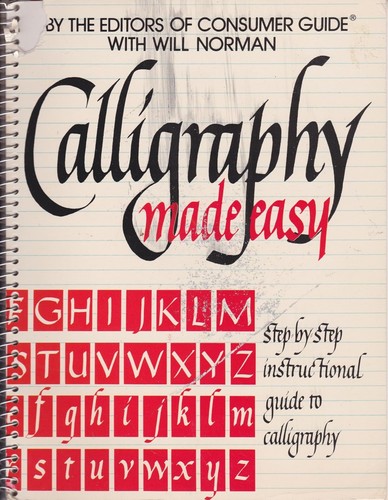 BY THE EDITORS OF CONSUMER GUIDE®
WITH WILL NORMAN
Calligraphy
made easy
G H I J K L M
S T U V W X Y Z
f g h i j k l m
s t u v w x y z
step by step
instructional
guide to
calligraphy